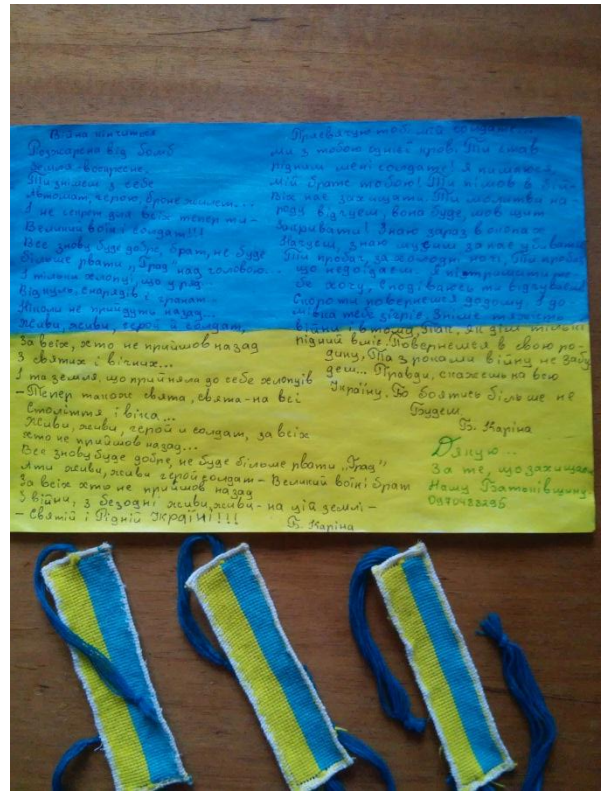 Війна кінчиться
Розжарена від бомб
Земля воскресне.
Ти знімеш з себе
Автомат, герою, бронежилет...
І не секрет для всіх тепер ти -
Великий воїн і солдат!!!
Все знову буде добре, брат, не буде
більше рвати "Град" над головою...
І тільки хлопці, що у ряд
Від куль, снарядів і гранат...
Ніколи не прийдуть назад...
Живи, живи, герой и солдат,
За всіх, хто не прийшов назад
З святих і вічних...
І та земля, що прийняла до себе хлопців
- Тепер також свята, свята - на всі
Століття і віка...
Живи, живи, герой и солдат, за всіх
хто не прийшов назад...
Все знову буде добре, не буде більше рвати "Град"
А ти живи, живи герой солдат - Великий воїн і брат
За всіх хто не прийшов назад
З війни, з безодні живи, живи - на цій землі -
- Святій і Рідній Україні!!!
Б. Каріна
Присвячую тобі мій солдате...
ми з тобою одної крові. Ти став
рідним мені солдате! Я пишаюсь
Мій брате тобою! Ти пішов в бій
Всіх нас захищати. Ти молитви на-
роду відчуєш, вона буде, мов щит
Знаю зараз в окопах
знаю мусиш за нас убивати
Ти пробач, за холодні ночі, Ти пробач
що недоїдаєш. Я підтримати те-
бе хочу, сподіваюсь ти відчуваєш
Скоро ти повернешся додому. І до-
мівка тебе зігріє. Зніме тяжкість
війни і втому. Так, як дім тільки
рідний вміє. Повернешся в свою ро-
дину, Та з роками війну не забу-
деш... Правди, скажеш на всю
Україну. Бо боятись більше не
Будеш.
Б. Каріна
Дякую...
За те, що захищаєш
Нашу Батьківщину.